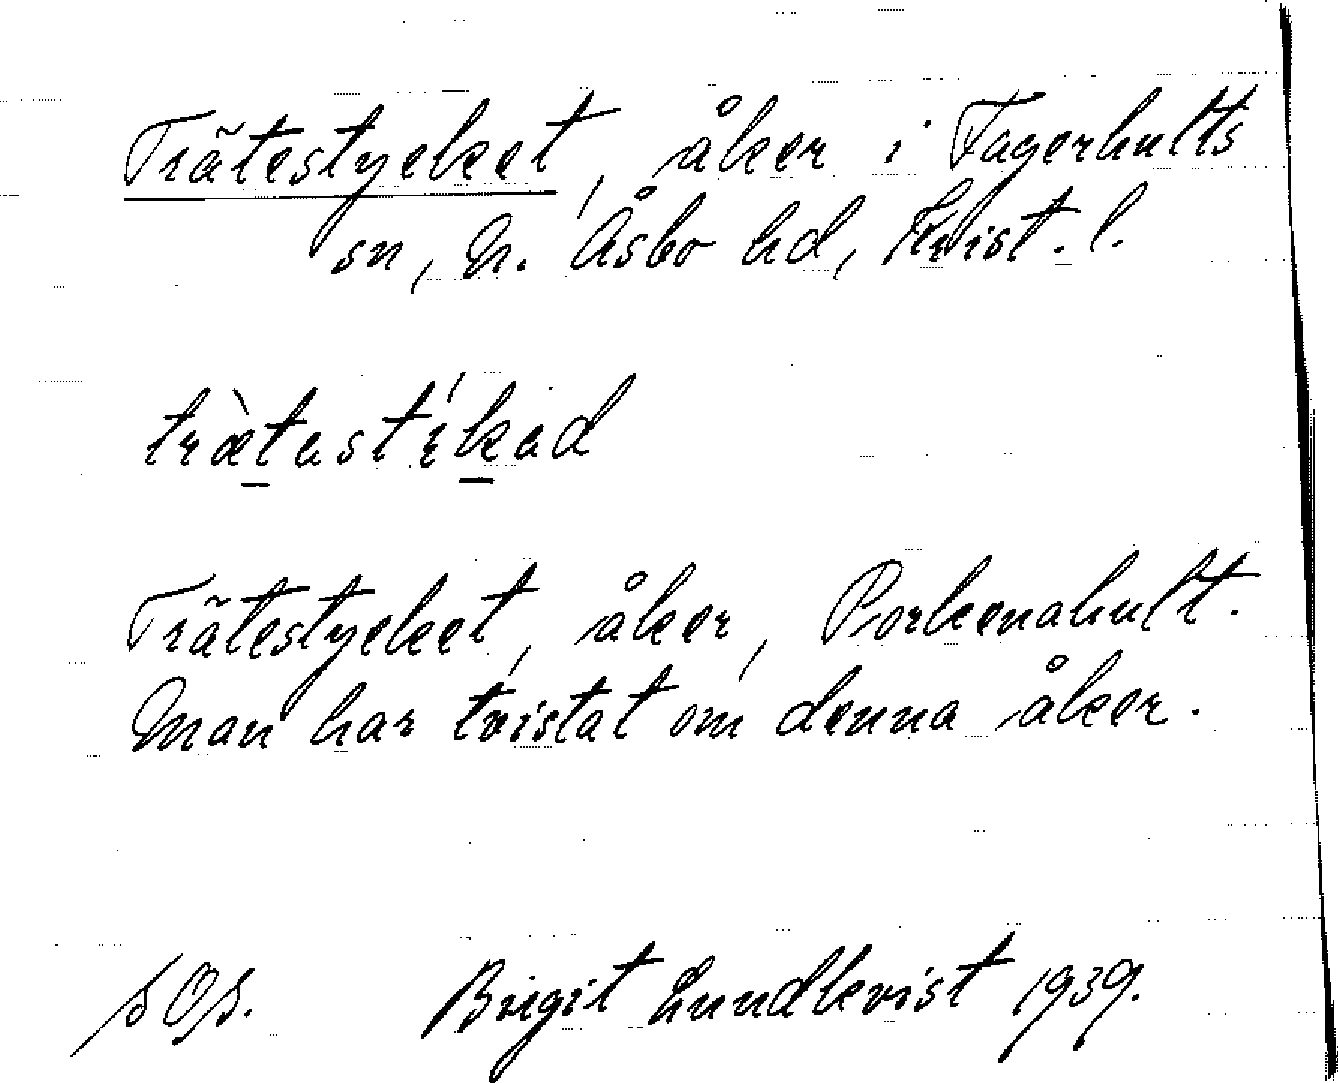 Trätestycket, åker i Fagerhults
sn, N. Åsbo hd, Krist. l.
træ̀tastýkad
Trätestycket, åker, Porkenahult.
Man har tvistat om denna åker.
Birgit Lundkvist 1939.